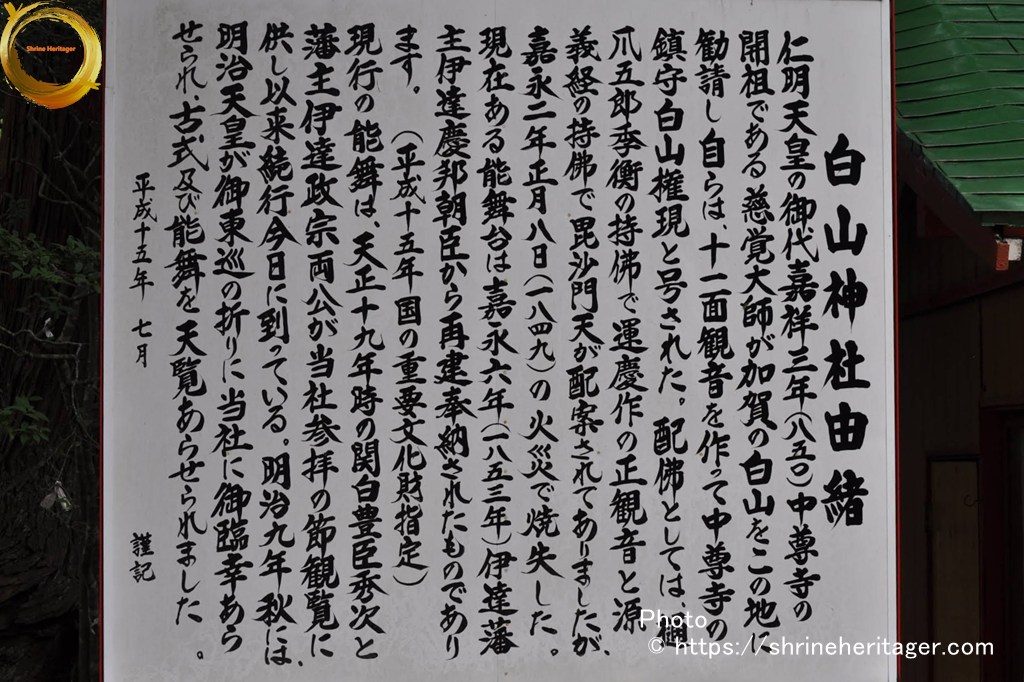 白山神社由緒
仁明天皇の御代嘉祥三年(八五〇)中尊寺の
開祖である慈覚大師が加賀の白山をこの地に
勧請し自らは、十一面観音を作って中尊寺の
鎮守白山権現と号された。配佛としては、
爪五郎季衡の持佛で運慶作の正観音と源
義経の持佛で毘沙門天が配案されてありましたが、
嘉永二年正月八日(一八四九)の火災で焼失した。
現在ある能舞台は嘉永六年(一八五三年)伊達藩
主伊達慶邦朝臣から再建奉納されたものであり
ます。(平成十五年国の重要文化財指定)
現行の能舞は、天正十九年時の関白豊臣秀次と
藩主伊達政宗両公が当社参拝の節観覧に
供し以来続行今日に到っている。明治九年秋には、
明治天皇が御東巡の折りに当社に御臨幸あら
せられ、古式及び能舞を天覧あらせられました。
平成十五年 七月
謹記
Shrine Heritager
Photo
© https://shrineheritager.com